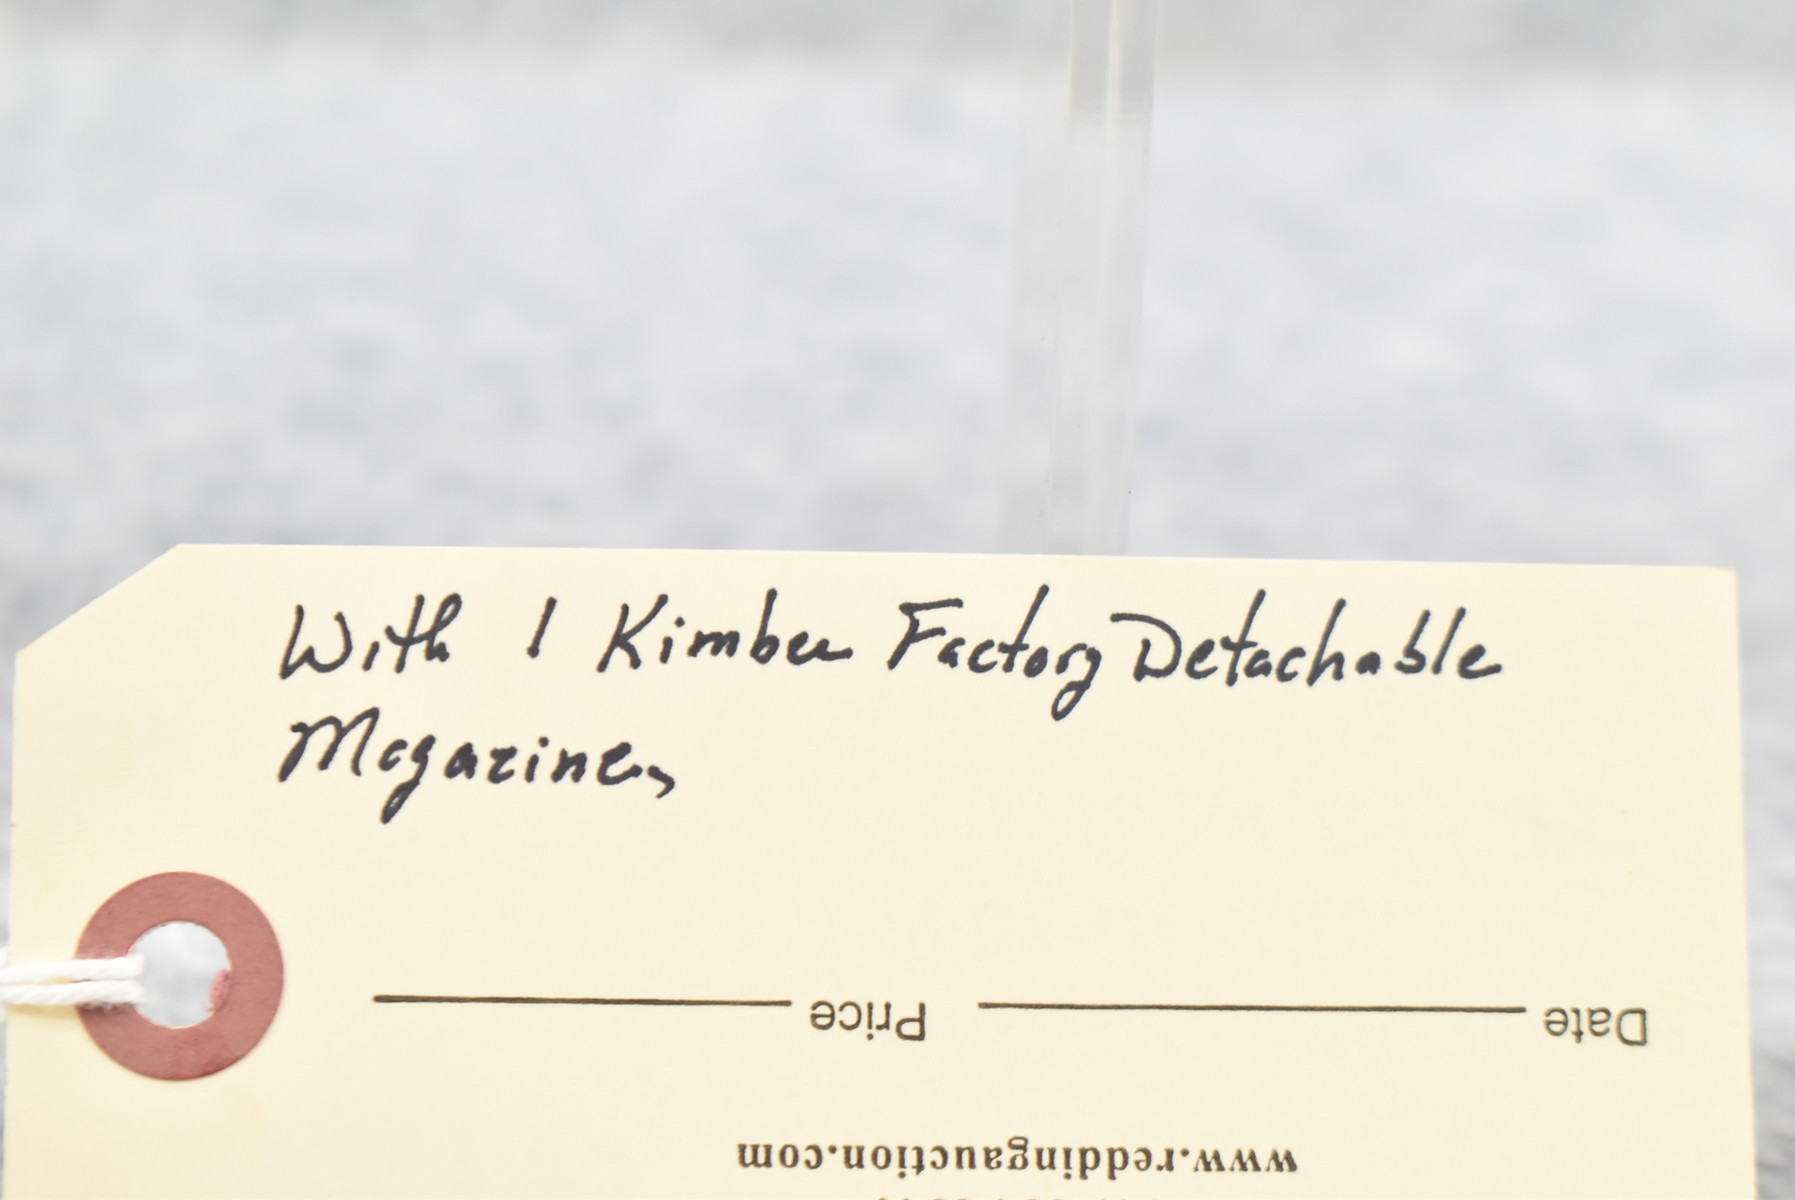 With 1 Kimber Factory Detachable
Magazine,
Price Date
www.reddingauction.com